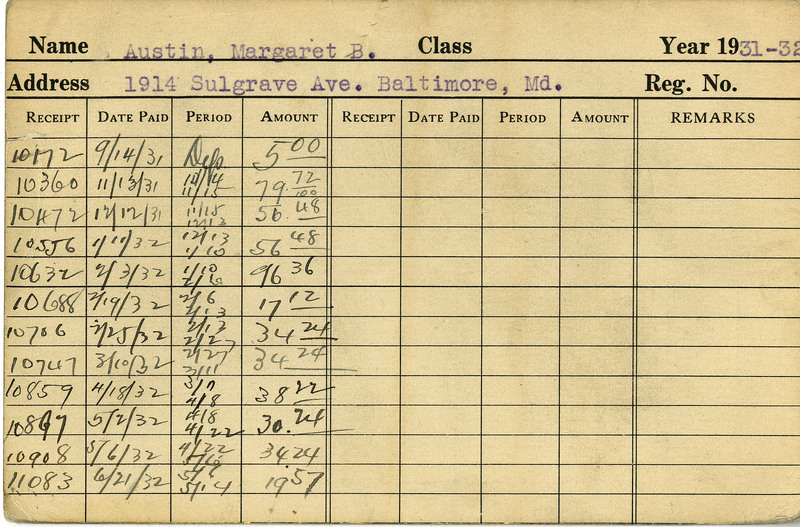 Name Austin, Margaret B. Class Year 1931-32
Address 1914 Sulgrave Ave. Baltimore, Md. Reg. No.
RECEIPT DATE PAID PERIOD AMOUNT RECEIPT DATE PAID PERIOD AMOUNT REMARKS
10172 9/14/31 Dep. 5 00
10360 11/13/31 79. 72/100
10472 12/12/31 11/15 12/13 56. 48
10556 1/11/32 12/13 1/10 56 48
10632 2/3/32 1/10 96 36
10688 2/19/32 2/6 2/13 17 12
10706 2/25/32 2/13 2/27 34 24
10747 3/10/32 2/27 3/11 34 24
10859 4/18/32 4/8 38 22
5/2/32 4/8 4/22 30. 24
10908 5/6/32 4/22 34 24
11083 6/21/32 5/14 19 57